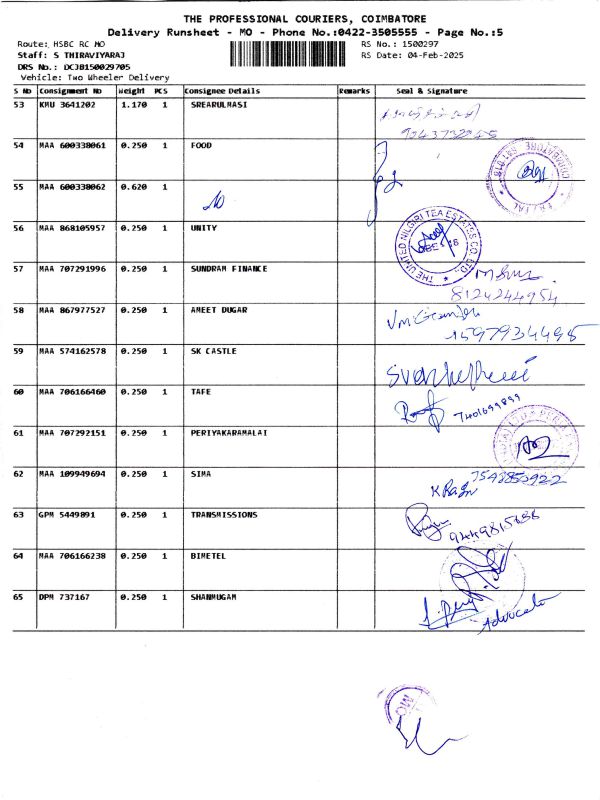 THE PROFESSIONAL COURIERS, COIMBATORE
Delivery Runsheet - MO - Phone No.:0422-3505555 - Page No.:5
Route: HSBC RC MO RS No.: 1500297
Staff: S THIRAVIYARAJ RS Date: 04-Feb-2025
DRS No.: DCJB150029705
Vehicle: Two Wheeler Delivery
S No Consignment No Weight PCS Consignee Details Remarks Seal & Signature
53 KMU 3641202 1.170 1 SREARULMASI
54 MAA 600338061 0.250 1 FOOD
55 MAA 600338062 0.620 1
56 MAA 868105957 0.250 1 UNITY
THE UNITED NILGIRI TEA ESTATES CO. LTD.
57 MAA 707291996 0.250 1 SUNDRAM FINANCE
8124244954
58 MAA 867977527 0.250 1 AMEET DUGAR
59 MAA 574162578 0.250 1 SK CASTLE
60 MAA 706166460 0.250 1 TAFE
7401699899
61 MAA 707292151 0.250 1 PERIYAKARAMALAI
62 MAA 109949694 0.250 1 SIMA
63 GPM 5449891 0.250 1 TRANSMISSIONS
64 MAA 706166238 0.250 1 BIMETEL
65 DPM 737167 0.250 1 SHANMUGAM
Advocate